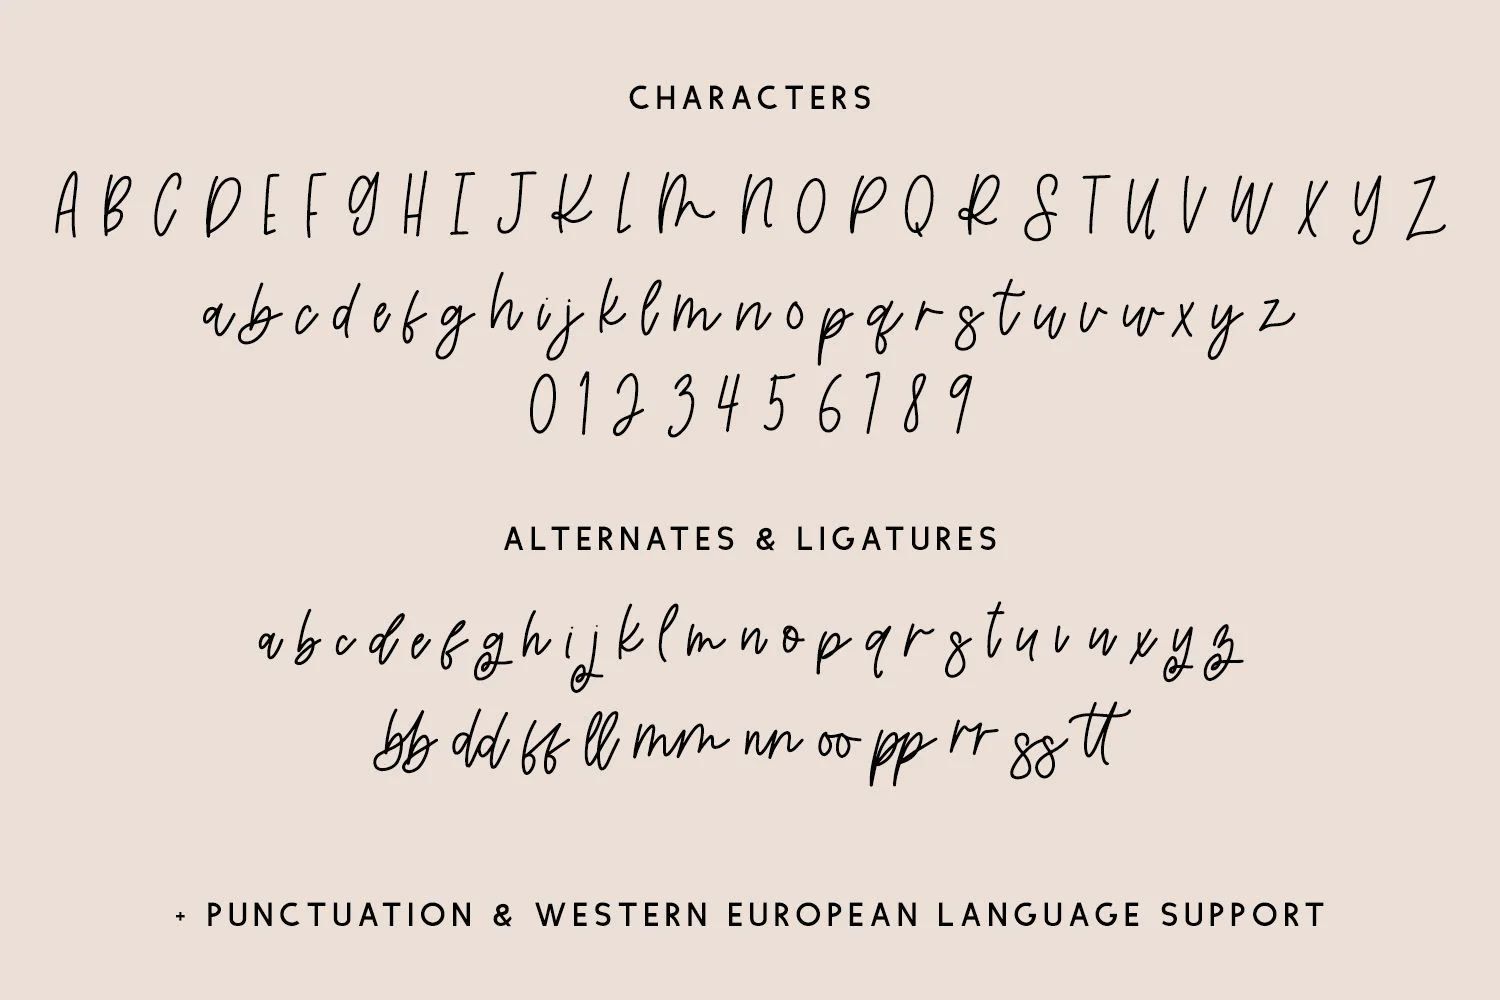 CHARACTERS
A B C D E F G H I J K L M N O P Q R S T U V W X Y Z
a b c d e f g h i j k l m n o p q r s t u v w x y z
0 1 2 3 4 5 6 7 8 9
ALTERNATES & LIGATURES
a b c d e f g h i j k l m n o p q r s t u v w x y z
bb dd ff ll mm nn oo pp rr ss tt
+ PUNCTUATION & WESTERN EUROPEAN LANGUAGE SUPPORT